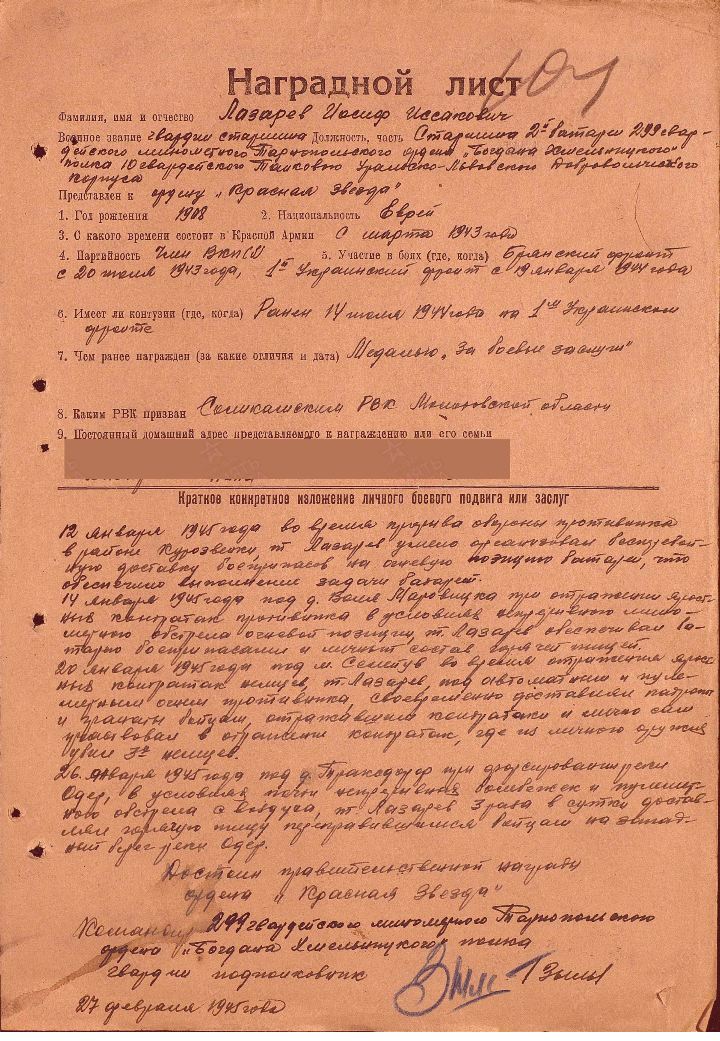 Наградной лист
Фамилия, имя и отчество Лазарев Иосиф Иссакович
Военное звание гвардии старшина Должность, часть Старшина 2й батареи 299 гвар-
дейского минометного Тарнопольского ордена „Богдана Хмельницкого"
полка 10 гвардейского Танкового Уральско-Львовского Добровольческого
Корпуса
Представлен к ордену „Красная Звезда"
1. Год рождения 1908 2. Национальность Еврей
3. С какого времени состоит в Красной Армии С марта 1943 года
4. Партийность Член ВКП(б) 5. Участие в боях (где, когда) Брянский фронт
с 20 июля 1943 года, 1й Украинский фронт с 19 января 1944 года
6. Имеет ли контузии (где, когда) Ранен 14 июля 1944 года на 1ом Украинском
фронте
7. Чем ранее награжден (за какие отличия и дата) Медалью „За боевые заслуги"
8. Каким РВК призван Соликамским РВК Молотовской области
9. Постоянный домашний адрес представляемого к награждению или его семьи
Краткое конкретное изложение личного боевого подвига или заслуг
12 января 1945 года во время прорыва обороны противника
в районе Курозвенки, т. Лазарев умело организовал
доставку боеприпасов на огневую позицию батареи, что
обеспечило выполнение задачи батареей.
14 января 1945 года под д. Воля Маровицка при отражении ярост-
ных контратак противника в условиях непрерывного мино-
метного обстрела огневой позиции, т. Лазарев обеспечивал ба-
тарею боеприпасами и личный состав горячей пищей.
20 января 1945 года под м. во время отражения ярос-
ных контратак немцев, т. Лазарев, под автоматным и пуле-
метным огнем противника, своевременно доставлял патроны
и гранаты бойцам, отражавшим контратаки и лично сам
участвовал в отражении контратак, где из личного оружия
убил 3х немцев.
26 января 1945 года под д. при форсировании реки
Одер, в условиях почти непрерывных бомбежек и пулемет-
ного обстрела с воздуха, т. Лазарев 3 раза в сутки достав-
лял горячую пищу переправившимся бойцам на запад-
ный берег реки Одер.
Достоин правительственной награды
ордена „Красная Звезда"
Командир 299 гвардейского миномерного Тарнопольского
ордена „Богдана Хмельницкого" полка
гвардии подполковник
27 февраля 1945 года